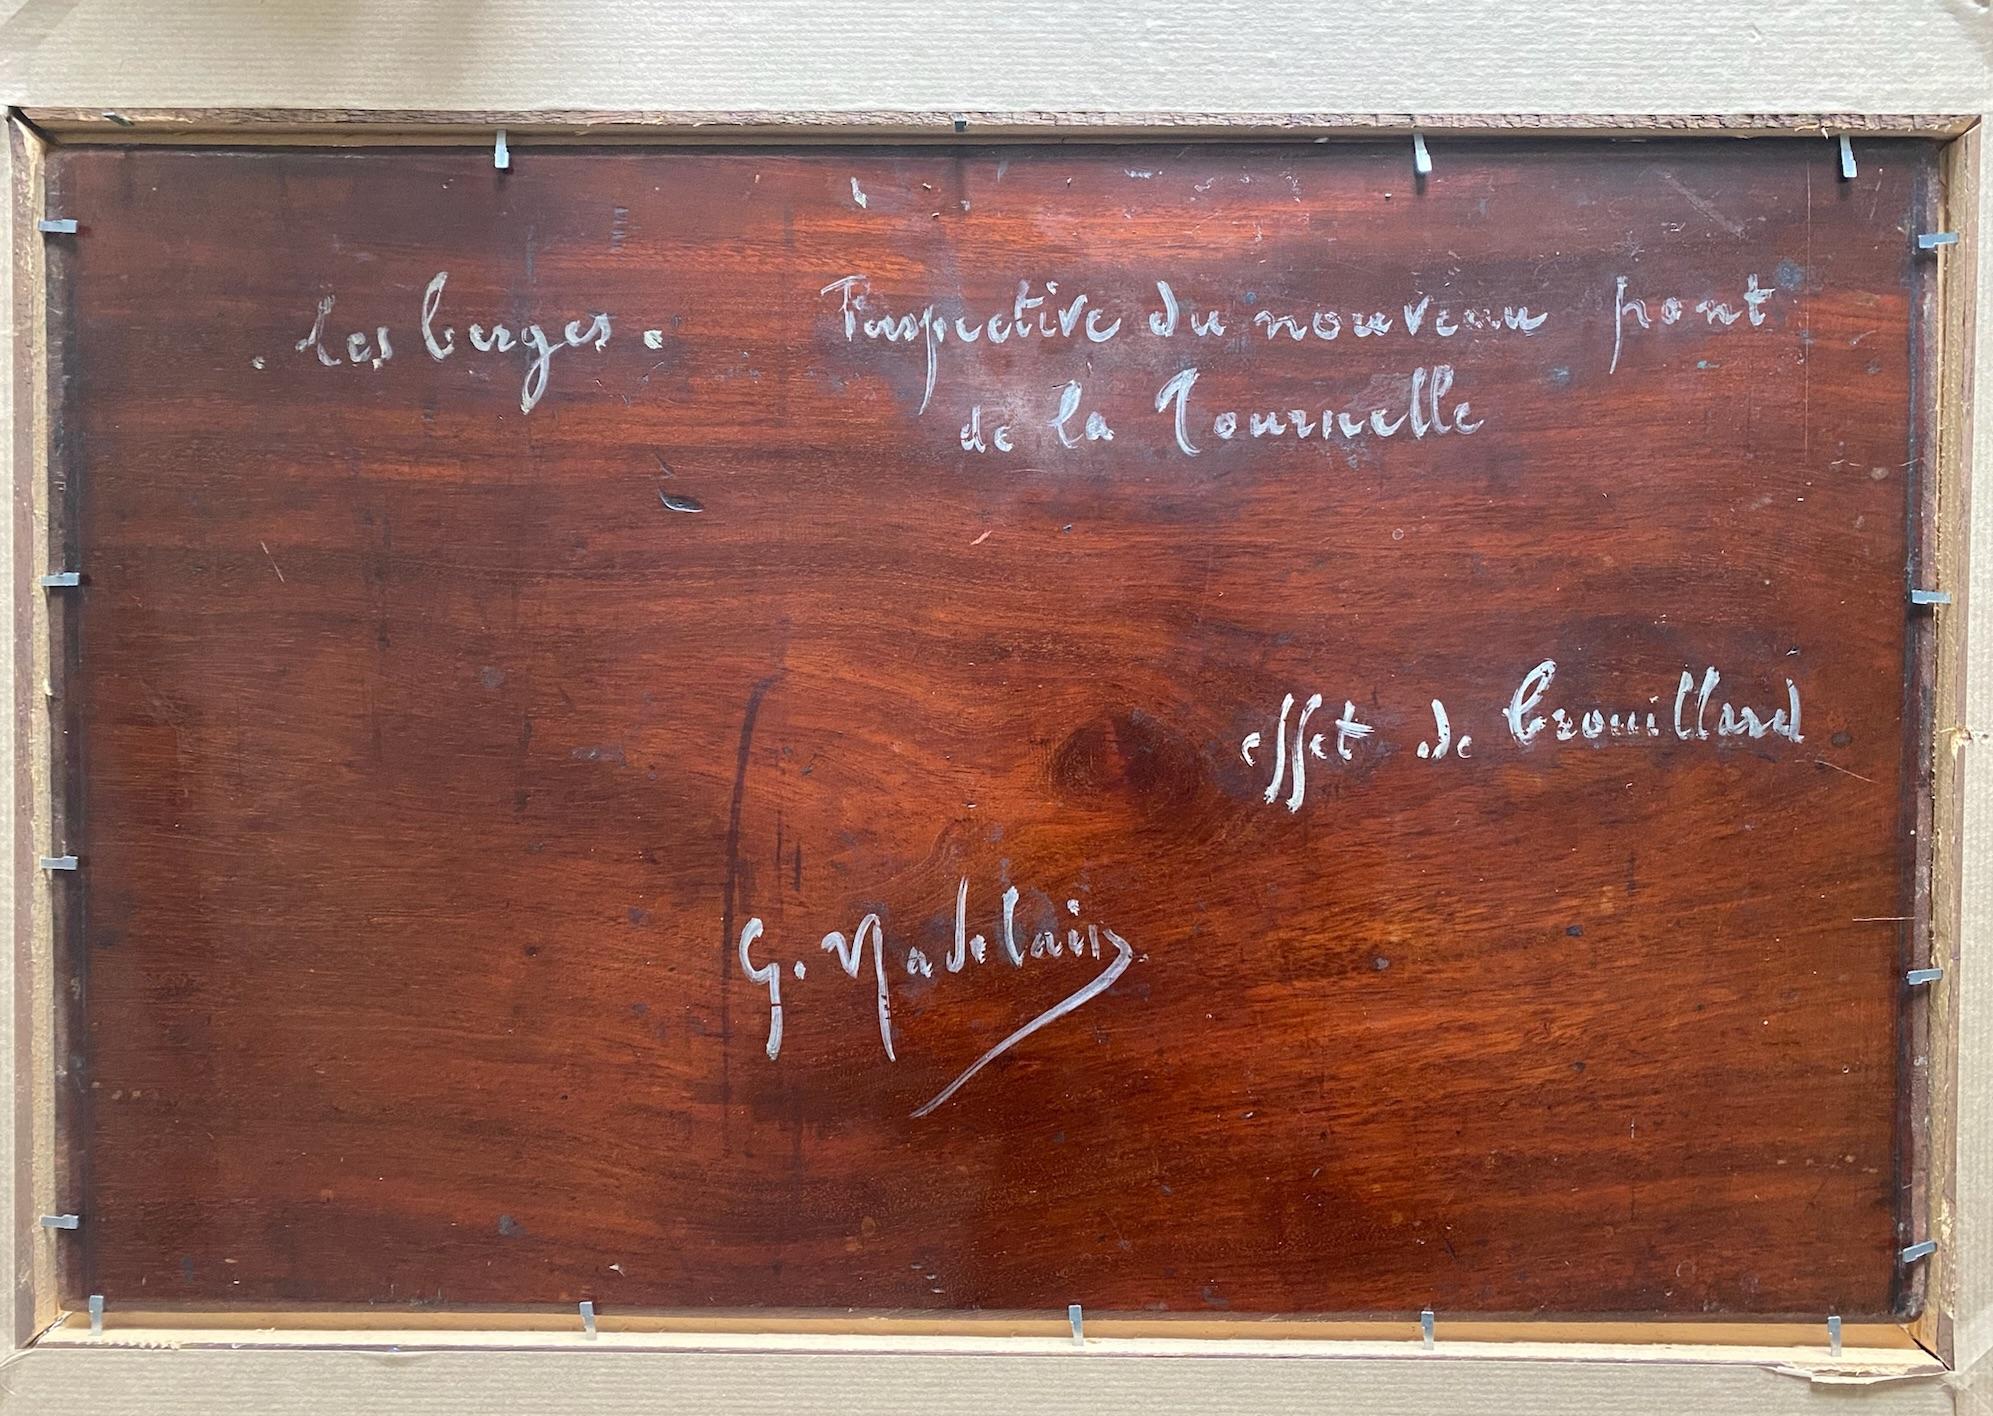 . Les berges . Perspective du nouveau pont
de la Tournelle
effet de brouillard
G. Madelain